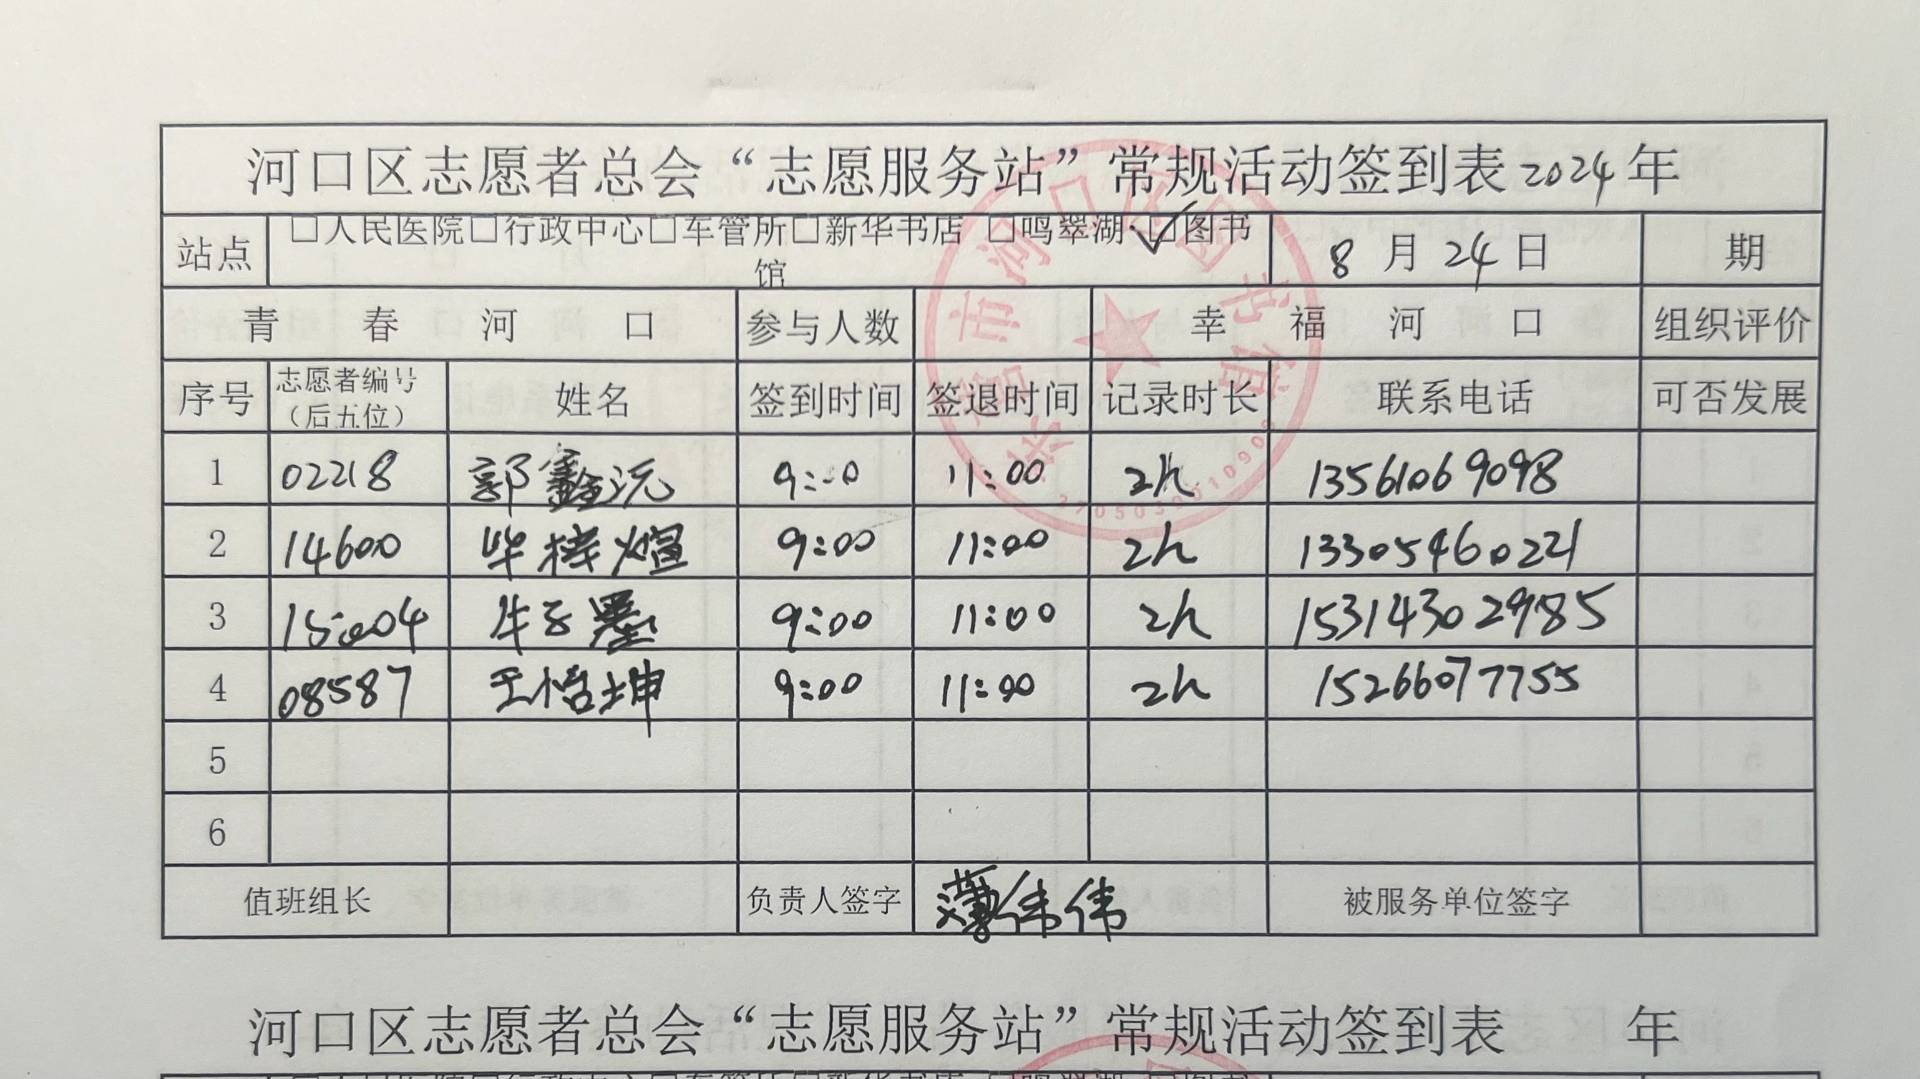 河口区志愿者总会“志愿服务站”常规活动签到表2024年
站点 □人民医院□行政中心□车管所□新华书店 □鸣翠湖 ☑图书馆 8月24日 期
青春河口 参与人数 幸福河口 组织评价
序号 志愿者编号（后五位） 姓名 签到时间 签退时间 记录时长 联系电话 可否发展
1 02218 郭鑫沅 9:00 11:00 2h 13561069098
2 14600 毕梓煊 9:00 11:00 2h 13305460221
3 15004 牛子墨 9:00 11:00 2h 15314302985
4 08587 王恺坤 9:00 11:00 2h 15266077755
5
6
值班组长 负责人签字 薄伟伟 被服务单位签字
河口区志愿者总会“志愿服务站”常规活动签到表 年
东营市河口区图书馆